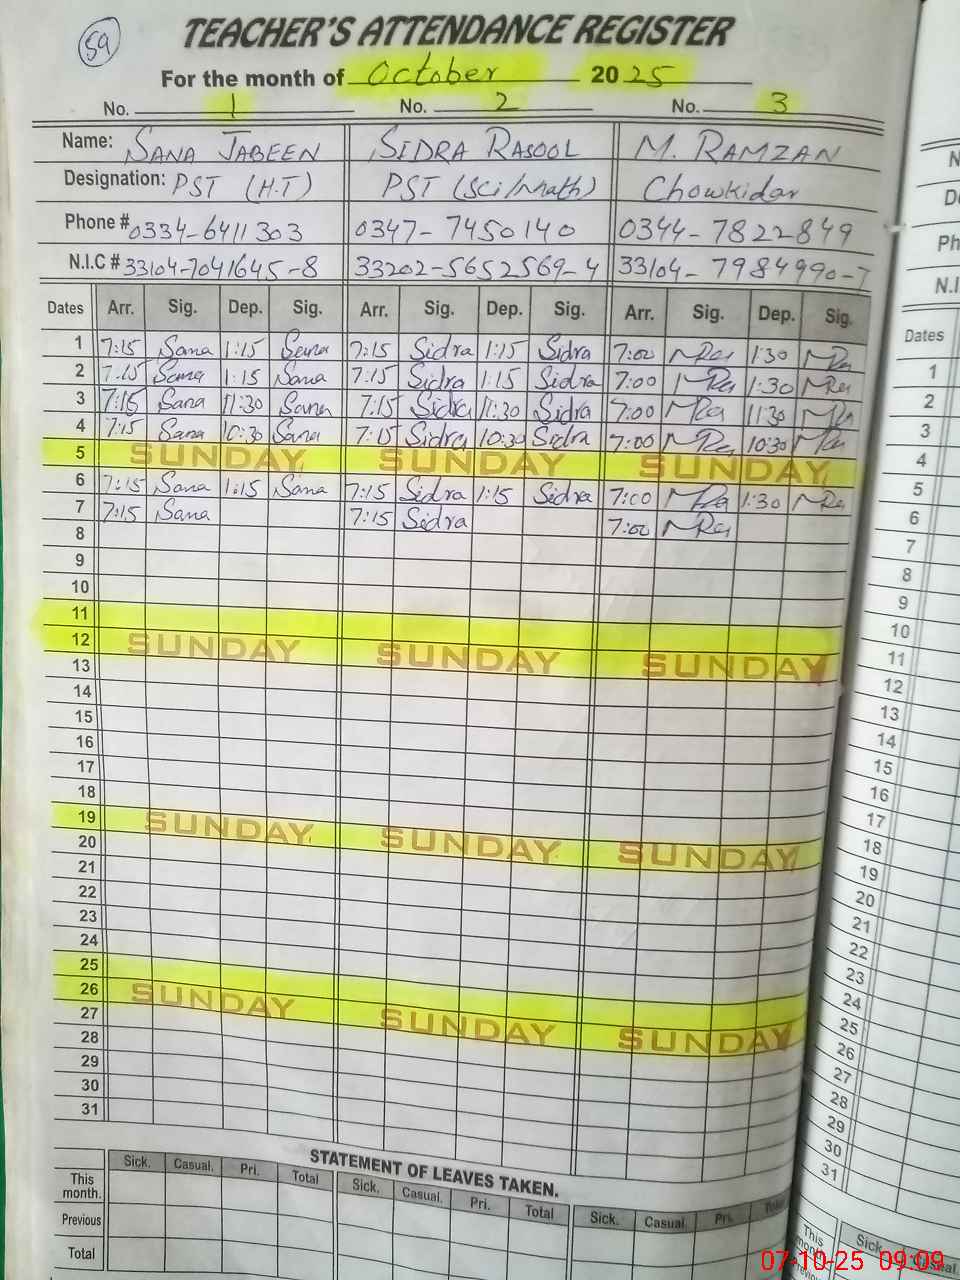 59
TEACHER'S ATTENDANCE REGISTER
For the month of October 2025
No. 1 No. 2 No. 3
Name: SANA JABEEN SIDRA RASOOL M. RAMZAN
Designation: PST (H.T) PST (Sci/Math) Chowkidar
Phone # 0334-6411303 0347-7450140 0344-7822849
N.I.C # 33104-7041645-8 33202-5652569-4 33104-7984990-7
Dates Arr. Sig. Dep. Sig. Arr. Sig. Dep. Sig. Arr. Sig. Dep. Sig.
1 7:15 Sana 1:15 Sana 7:15 Sidra 1:15 Sidra 7:00 MRa 1:30 MRa
2 7:15 Sana 1:15 Sana 7:15 Sidra 1:15 Sidra 7:00 MRa 1:30 MRa
3 7:15 Sana 11:30 Sana 7:15 Sidra 11:30 Sidra 7:00 MRa 11:30 MRa
4 7:15 Sana 10:30 Sana 7:15 Sidra 10:30 Sidra 7:00 MRa 10:30 MRa
5 SUNDAY SUNDAY SUNDAY
6 7:15 Sana 1:15 Sana 7:15 Sidra 1:15 Sidra 7:00 MRa 1:30 MRa
7 7:15 Sana 7:15 Sidra 7:00 MRa
8
9
10
11
12 SUNDAY SUNDAY SUNDAY
13
14
15
16
17
18
19 SUNDAY SUNDAY SUNDAY
20
21
22
23
24
25
26 SUNDAY SUNDAY SUNDAY
27
28
29
30
31
STATEMENT OF LEAVES TAKEN.
Sick. Casual. Pri. Total Sick. Casual. Pri. Total Sick. Casual. Pri. Total
This month.
Previous
Total
N
De
Ph
N.I
Dates
1
2
3
4
5
6
7
8
9
10
11
12
13
14
15
16
17
18
19
20
21
22
23
24
25
26
27
28
29
30
31
Sick Casual.
This month
Previous
07-10-25 09:09